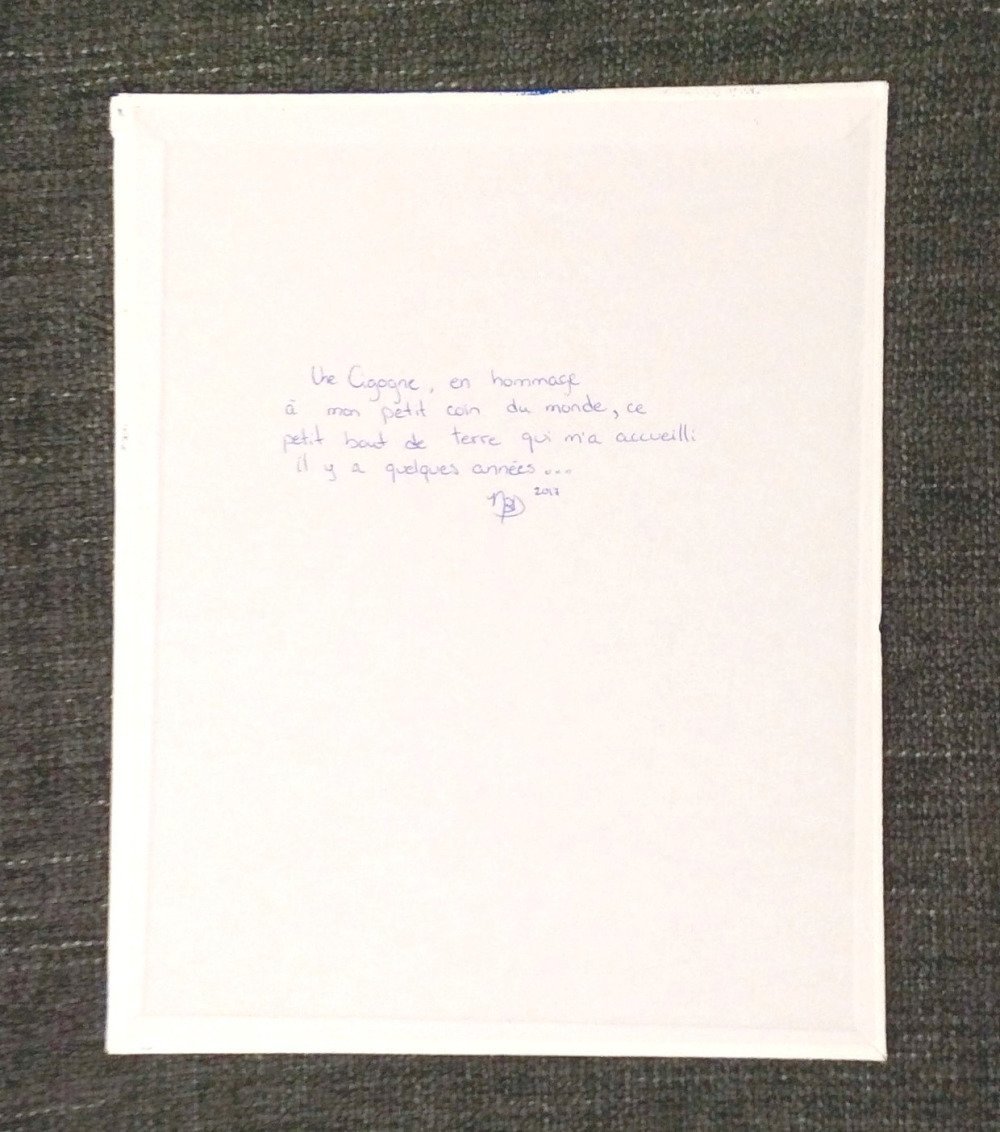 Une Cigogne, en hommage
à mon petit coin du monde, ce
petit bout de terre qui m'a accueilli
il y a quelques années...
2017